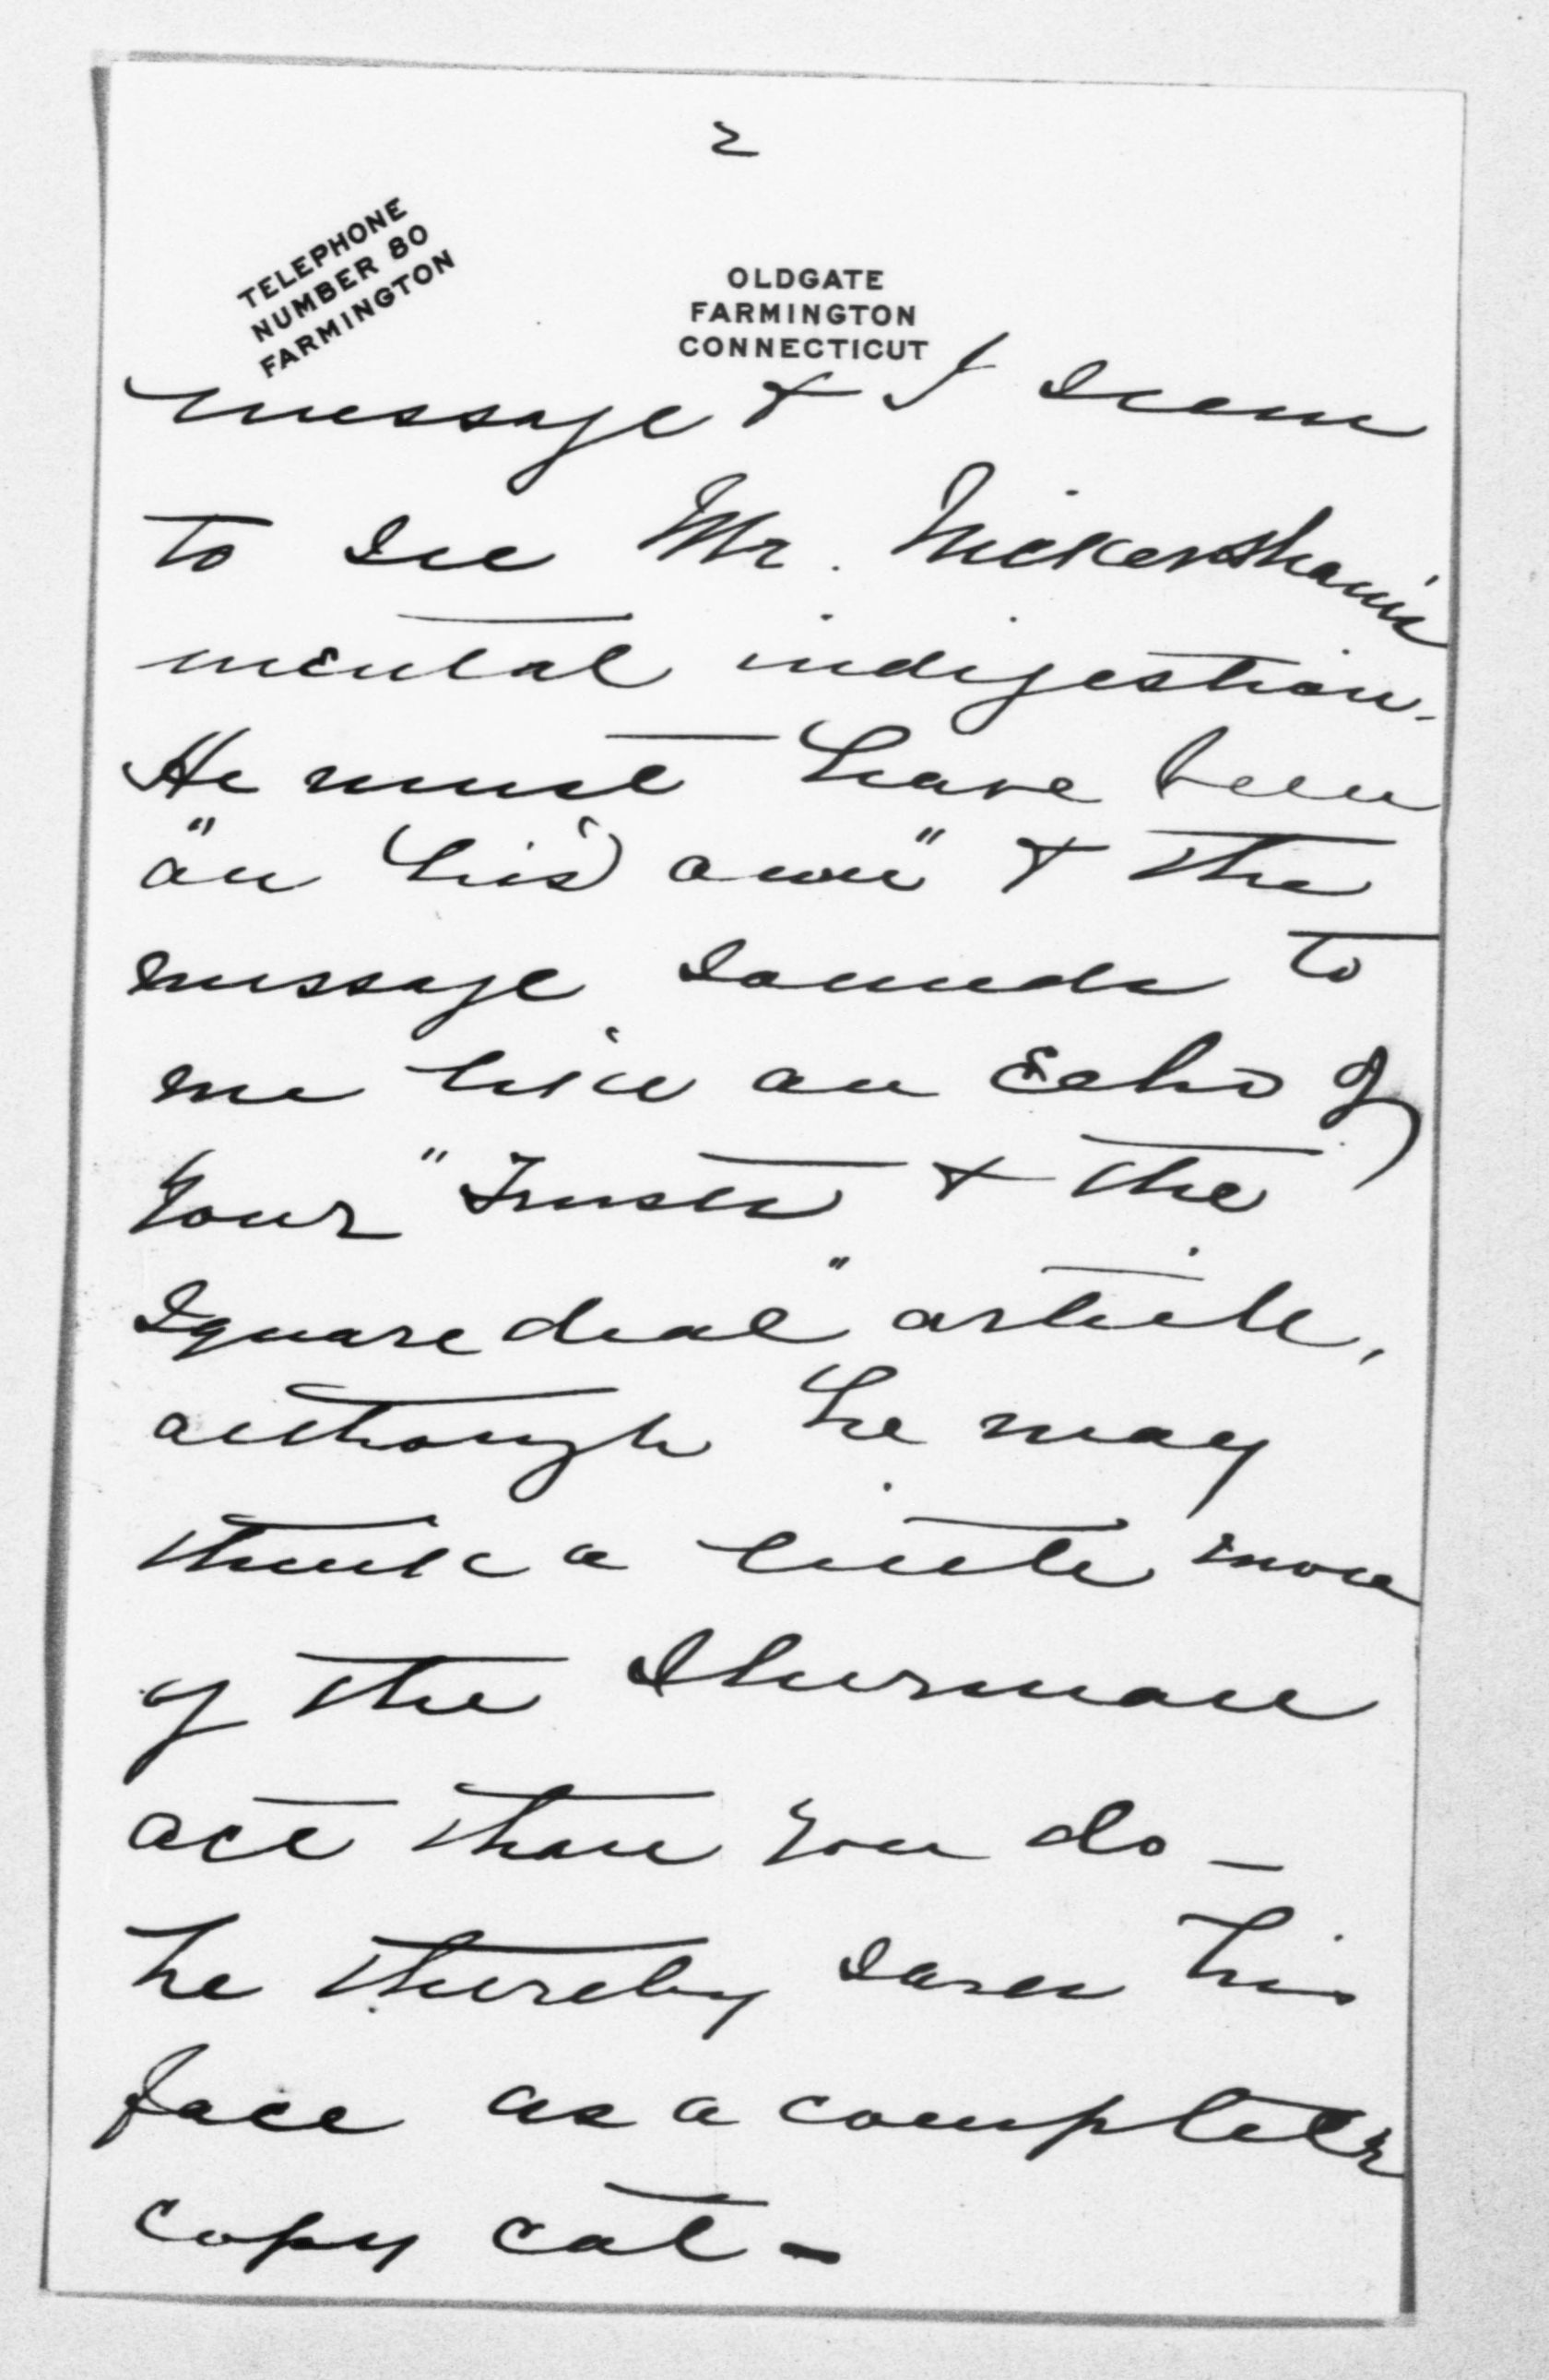 2
TELEPHONE
NUMBER 80
FARMINGTON
OLDGATE
FARMINGTON
CONNECTICUT
message & I seem
to see Mr. Wickersham's
mental indigestion.
He must have been
"on (his) own" & the
message sounds to
me like an echo of
your "Trusts & the
Square deal" article,
although he may
think a little more
of the Sherman
act than you do –
he thereby saves his
face as a complete
copy cat –